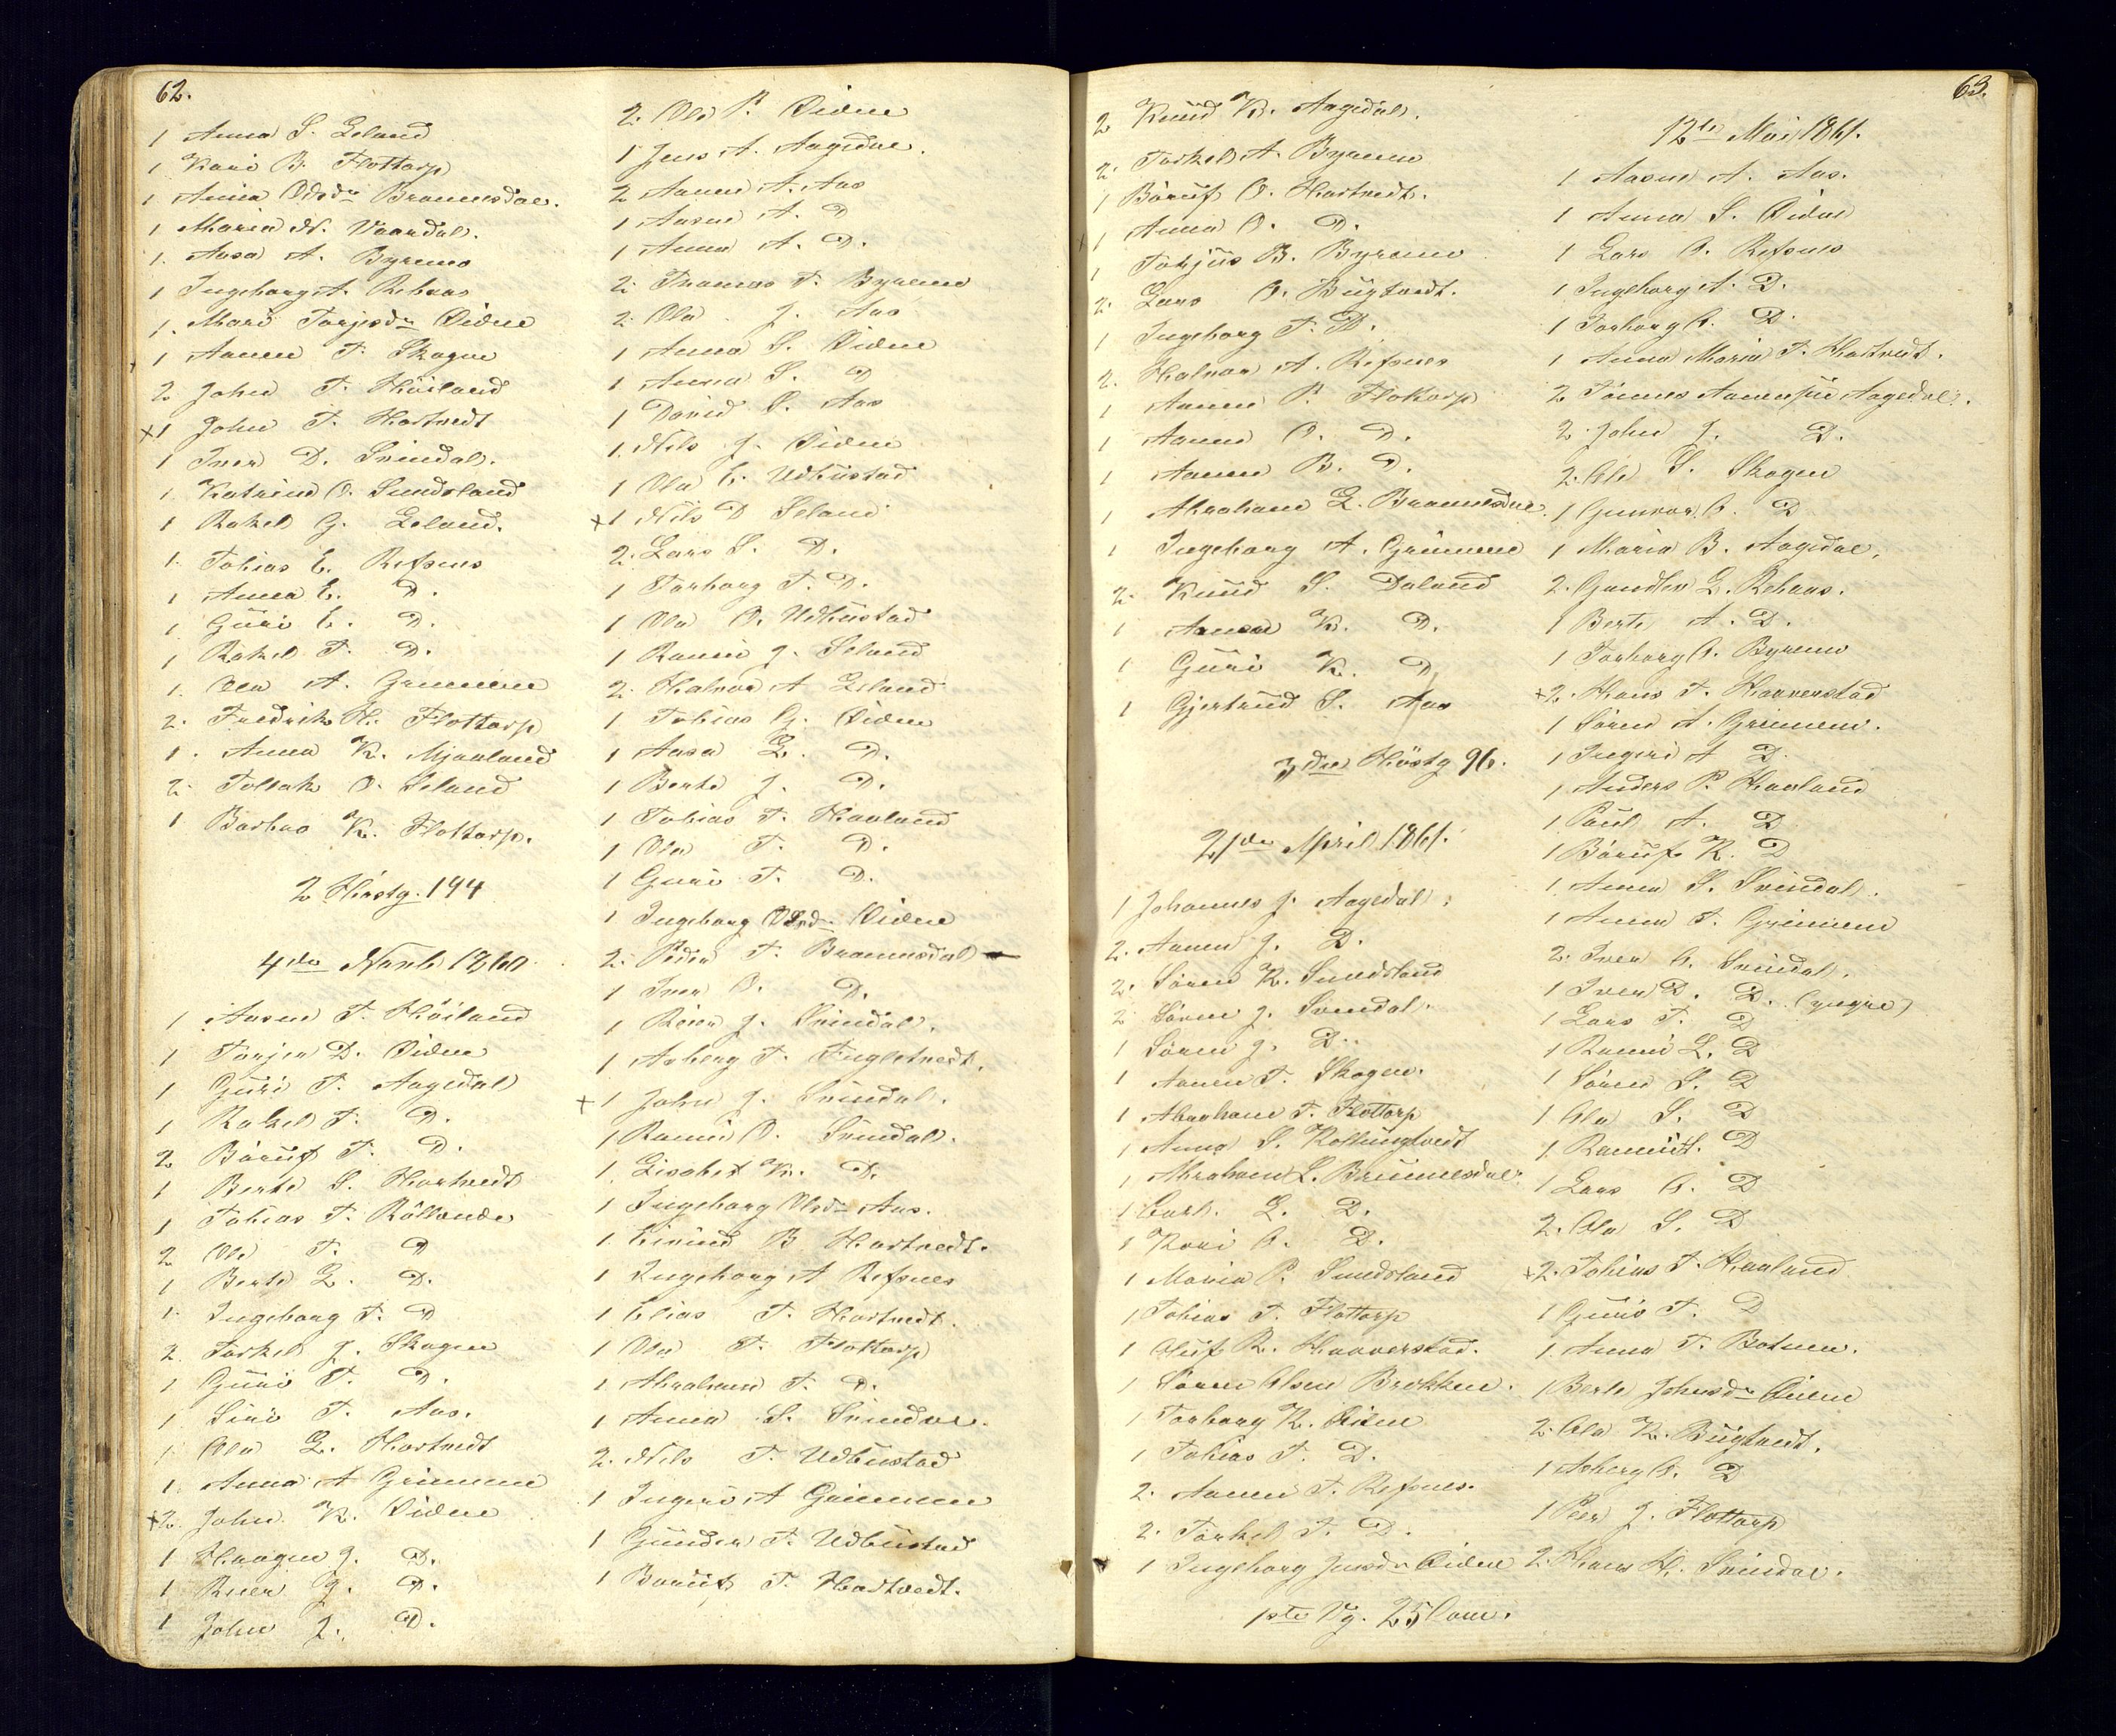 62.
1 Anna S. Leland
1 Kari B. Flottorp
1 Anna Olsdr Brannesdal.
1 Maria N. Vaardal.
1. Aasa A. Byremo
1 Ingeborg A. Rehaas
1. Mari Torjesdr Eidne
1 Aanen T. Skogen
2 John T. Höiland
x1 John T. Hortvedt
1 Iver D. Svindal.
1. Katrine O. Sundsland
1 Rakel G. Leland.
1. Tobias E. Refsnes
1 Anna E. D.
1 Guri E. D.
1 Rakel T. D.
1. Ola A. Grummen
2. Fredrik H. Flottorp
1. Anna K. Mjaaland
2. Tollak O. Leland
1 Barbro K. Flottorp.
2 Höstg. 194
4de Novb 1860
1 Aasne T. Höiland
1 Torjer D. Eidne
1 Guri T. Aagedal
1 Rakel T. D.
2 Böruf T. D.
1 Berte S. Hortvedt
1 Tobias T. Röllende
2 Ole T. D
1 Berte L. D.
1. Ingeborg T. D
2. Torkel J. Skogen
1 Guri T. D.
1 Siri T. Aas.
1 Ola L. Hortvedt
1. Anna A Grimmen
x2. John K. Eidne
1 Haagen J. D.
1 Reer J. D.
1 John J. D.
2. Ole P. Eidne
1 Jens A. Aagedal.
2 Aanen A. Aas
1 Aasne A. D
1 Anna A. D.
2. Thomas T. Byremo
2. Ola J. Aas
1 Anna S. Eidne
1 Anna S. D
1 David S. Aas
1. Nils J. Eidne
1 Ola E. Udbustad
x1 Nils D Leland
2. Lars S. D.
1 Torborg T. D.
1 Ola O. Udbustad
1 Ranni J. Leland
2. Halvor A Leland
1 Tobias G. Eidne
1 Aasa L. D.
1 Berte J. D.
1 Tobias T. Haaland
1 Ola T. D.
1 Guri T. D.
1 Ingeborg Olsdr Eidne
2. Peder T. Brannesdal
1 Iver O. D.
1 Reier J. Svindal.
1 Asberg T. Fuglstvedt.
x1 John J. Svindal.
1 Ranni O. Svindal.
1. Lisabet K. D.
1 Ingeborg Olsdr Aas.
1. Eivind B. Hortvedt.
1 Ingeborg A Refsnes
1 Elias T. Hortvedt.
1 Ola T. Flottorp
1 Abraham T. D.
1 Anna S. Svindal.
2. Nils T. Udbustad
1 Ingerd A Grimmen
1 Gunder T. Udbustad
1 Böruf T. Hortvedt.
63.
2 Knud K. Aagedal.
2. Torkel A. Byremo
1 Böruf O. Hortvedt.
1 Anna O. D.
1 Torjus B. Byremo
2. Lars O. Bugtvedt.
1 Ingeborg T. D.
2. Halvor A. Refsnes
1 Aanen P. Flottorp
1 Aanen O. D.
1 Aanen B. D.
1 Abraham L. Brannesdal.
1 Ingeborg A. Grimmen
2. Knud S. Daland
1 Aanen K. D.
1 Guri K. D
1 Gjertrud S. Aas
3die Höstg 96.
21de April 1861.
1 Johannes J. Aagedal.
2. Aanen J. D.
2. Sören K. Sundsland
2 Sören J. Svindal.
1 Sören J. D.
1 Aanen T. Skogen.
1 Abraham T. Flottorp
1 Anna S. Kollungtvedt
1 Abraham L. Brunnesdal.
1 Carl. L. D.
1 Kari O. D.
1 Maria P. Sundsland
1 Tobias T. Flottorp
1 Oluf R. Haaverstad.
1 Sören Olsen Brekken.
1 Torborg K. Eidne
1 Tobias T. D.
2. Aanen T. Refsnes.
2. Torkel T. D.
1 Ingeborg Jensdr Eidne
1ste Vg. 25 Com.
12te Mai 1861.
1 Aasne A. Aas.
1 Anna S. Eidne
1 Lars O. Refsnes
1 Ingeborg A. D.
1 Torborg O. D.
1 Anna Maria T. Hortvedt.
2 Tönnes Aanensen Aagedal.
2. John J. D.
2. Ole S. Skogen
1 Gunvor O. D
1 Maria B. Aagedal.
2. Gundler L. Rehaas.
1 Berte A. D.
1 Torborg O. Byremo
x2. Hans T. Haaverstad
1 Sören A. Grimmen.
1 Ingerd A D.
1 Anders P. Haaland
1 Paul A. D
1 Böruf K. D
1. Anna S. Svindal.
1 Anna T. Grimmen
2. Iver O. Svindal.
1 Iver D. D. (yngre)
1 Lars T. D
1 Ranni L. D
1 Sören S. D
1 Ola S. D
1 Ranni T. D
1 Lars O. D
2. Ola S. D
x2. Tobias T. Haaland
1 Guri T. D
1. Anna T. Botnen.
1 Berte Johnsdr Eidne
2. Ola K. Bugtvedt.
1 Asberg O. D
1 Peer J. Flottorp
2. Hans H. Svindal.